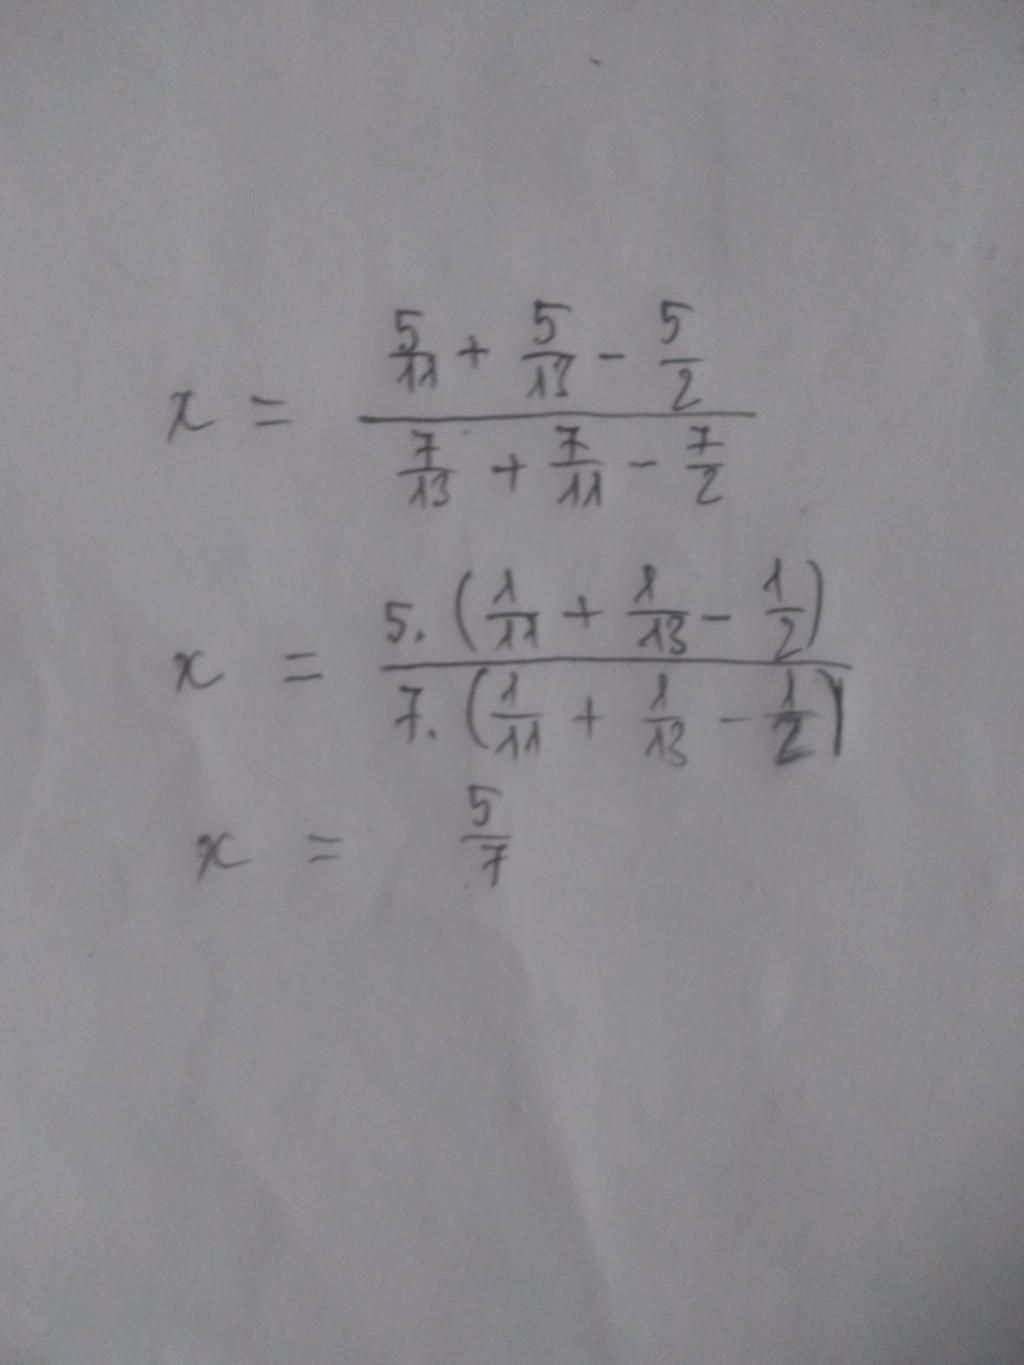 x = (5/11 + 5/13 - 5/2) / (7/13 + 7/11 - 7/2)
x = 5.(1/11 + 1/13 - 1/2) / 7.(1/11 + 1/13 - 1/2)
x = 5/7